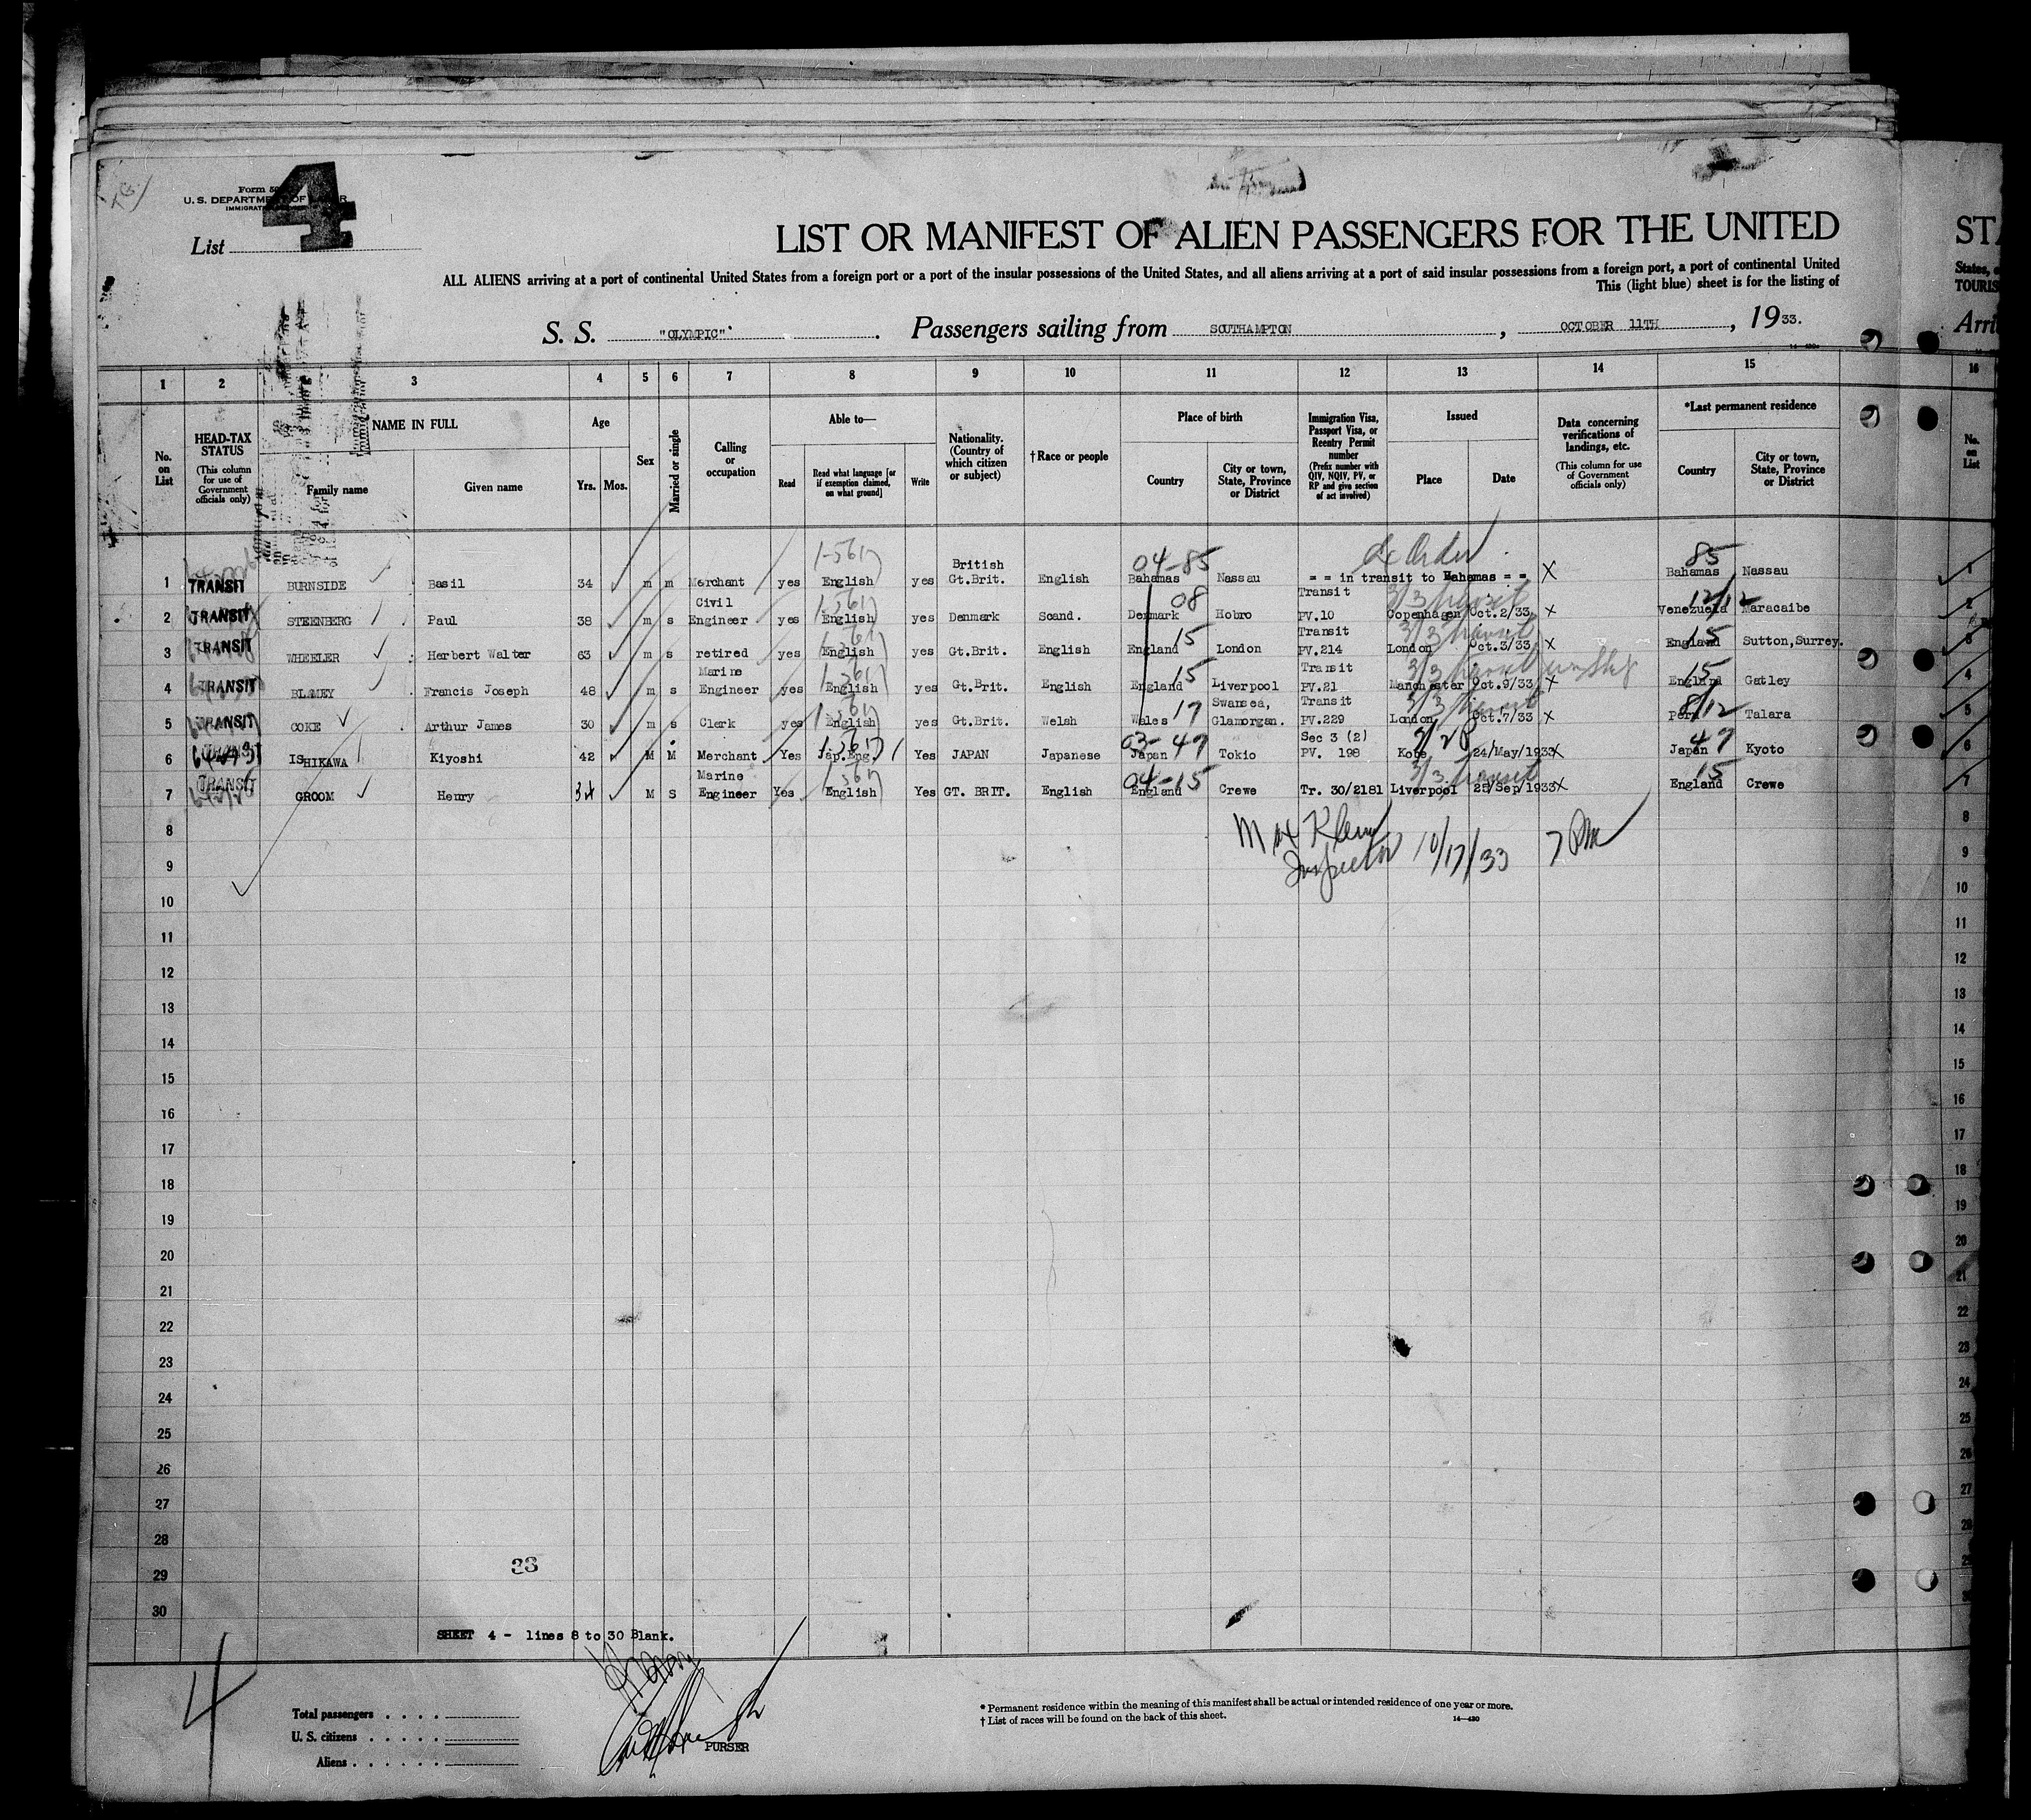 Form 50
U. S. DEPARTMENT OF LABOR
4
List
LIST OR MANIFEST OF ALIEN PASSENGERS FOR THE UNITED
STA
ALL ALIENS arriving at a port of continental United States from a foreign port or a port of the insular possessions of the United States, and all aliens arriving at a port of said insular possessions from a foreign port, a port of continental United
States,
This (light blue) sheet is for the listing of
TOURIS
S. S. "OLYMPIC". Passengers sailing from SOUTHAMPTON, OCTOBER 11TH, 1933.
Arri
1 2 3 4 5 6 7 8 9 10 11 12 13 14 15 16
No. on List
HEAD-TAX STATUS
(This column for use of Government officials only)
NAME IN FULL
Family name
Given name
Age
Yrs. Mos.
Sex
Married or single
Calling or occupation
Able to—
Read
Read what language [or if exemption claimed, on what ground]
Write
Nationality. (Country of which citizen or subject)
†Race or people
Place of birth
Country
City or town, State, Province or District
Immigration Visa, Passport Visa, or Reentry Permit number
(Prefix number with QIV, NQIV, PV, or RP and give section of act involved)
Issued
Place
Date
Data concerning verifications of landings, etc.
(This column for use of Government officials only)
*Last permanent residence
Country
City or town, State, Province or District
No. on List
04-85 85
1 TRANSIT BURNSIDE Basil 34 m m Merchant yes English yes British Gt.Brit. English Bahamas Nassau = = in transit to Bahamas = = X Bahamas Nassau 1
08 12/12
2 TRANSIT STEENBERG Paul 38 m s Civil Engineer yes English yes Denmark Scand. Denmark Hobro Transit PV.10 Copenhagen Oct.2/33 X Venezuela Maracaibe 2
15 15
3 TRANSIT WHEELER Herbert Walter 63 m s retired yes English yes Gt.Brit. English England London Transit PV.214 London Oct.3/33 X England Sutton,Surrey. 3
15 15
4 TRANSIT BLAMEY Francis Joseph 48 m s Marine Engineer yes English yes Gt.Brit. English England Liverpool Transit PV.21 Manchester Oct.9/33 X England Gatley 4
17 8/12
5 TRANSIT COKE Arthur James 30 m s Clerk yes English yes Gt.Brit. Welsh Wales Swansea, Glamorgan. Transit PV.229 London Oct.7/33 X Peru Talara 5
03-47 47
6 TRANSIT ISHIKAWA Kiyoshi 42 M M Merchant Yes Jap.Eng. Yes JAPAN Japanese Japan Tokio Sec 3 (2) PV. 198 Kobe 24/May/1933 X Japan Kyoto 6
04-15 15
7 TRANSIT GROOM Henry 34 M S Marine Engineer Yes English Yes GT. BRIT. English England Crewe Tr. 30/2181 Liverpool 25/Sep/1933 X England Crewe 7
Max Klein
Inspector 10/17/33 7 PM
8 8
9 9
10 10
11 11
12 12
13 13
14 14
15 15
16 16
17 17
18 18
19 19
20 20
21 21
22 22
23 23
24 24
25 25
26 26
27 27
28 28
29 29
30 30
33
SHEET 4 - lines 8 to 30 Blank.
4
Total passengers
U. S. citizens
Aliens
PURSER
* Permanent residence within the meaning of this manifest shall be actual or intended residence of one year or more.
† List of races will be found on the back of this sheet.
14—430